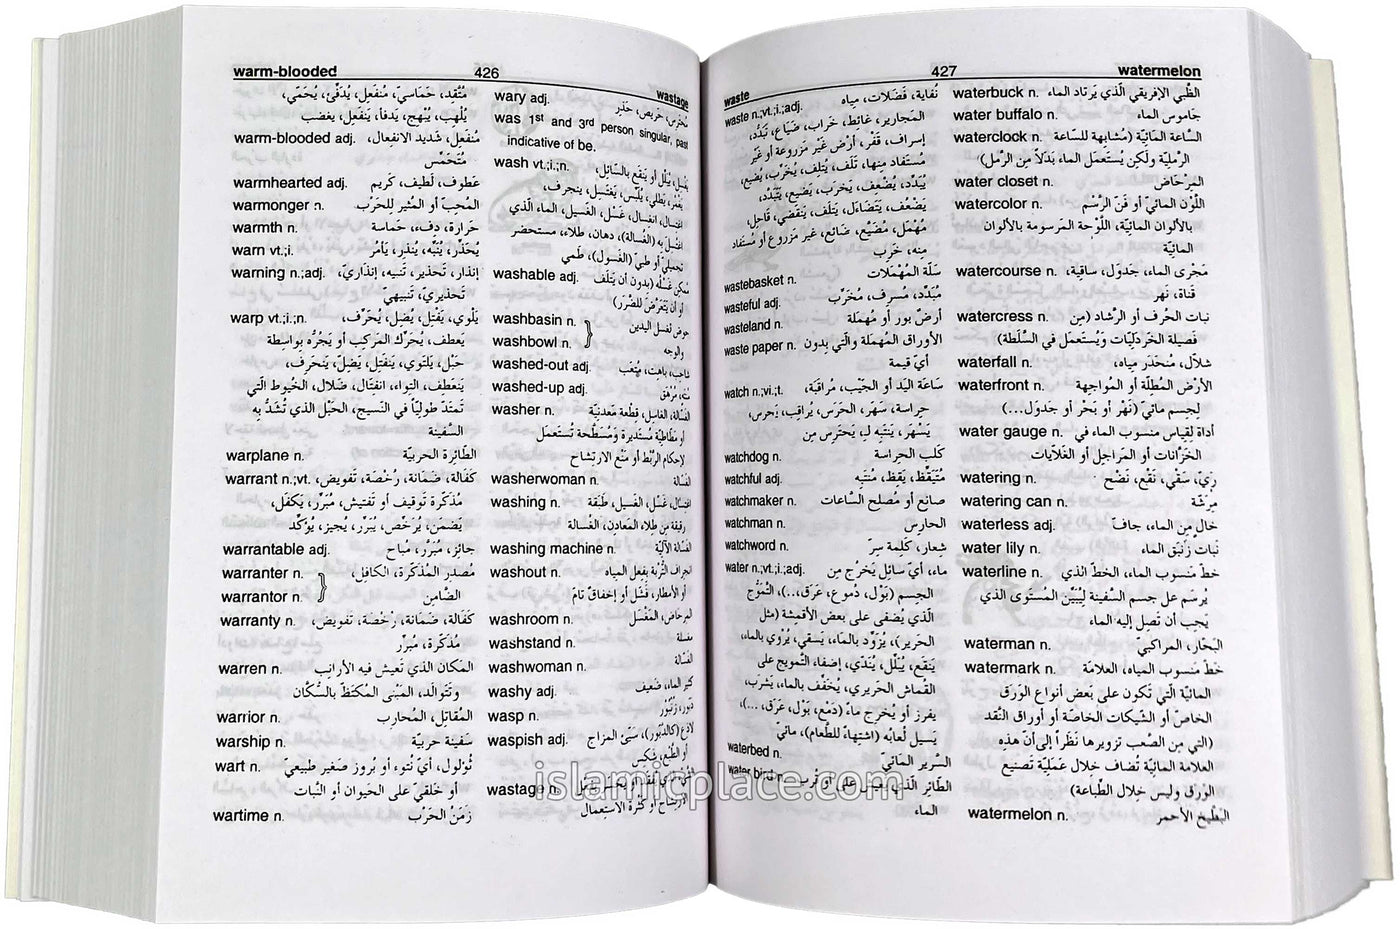 warm-blooded 426 wastage
مُتَّقِد، حَماسيّ، مُنفَعِل، يُدَفِّئ، يُحَمّي،
يُلْهِب، يُبْهِج، يَدفأ، يَنفَعِل، يغضب
warm-blooded adj. مُنفَعِل، شديد الانفعال،
مُتَحَمِّس
warmhearted adj. عَطوف، لَطيف، كَريم
warmonger n. المُحِبّ أو المُثير للحَرْب
warmth n. حَرارة، دِفء، حَماسة
warn vt.;i. يُحَذِّر، يُنَبِّه، يُنذِر، يأمُر
warning n.;adj. إنذار، تَحذير، تَنبيه، إنذاريّ،
تَحذيريّ، تَنبيهيّ
warp vt.;i.;n. يَلْوي، يَفْتِل، يُضِل، يُحَرِّف،
يعطف، يُحَرِّك المركِب أو يَجُرُّه بواسِطة
حَبْل، يَلتَوي، يَنفَتِل، يَضِلّ، يَنحَرِف،
يَنعَطِف، التِواء، انفِتال، ضَلال، الخُيوط الّتي
تَمتَدّ طوليّاً في النَسيج، الحَبْل الذي تُشَدُّ به
السَّفينة
warplane n. الطّائِرة الحربيّة
warrant n.;vt. كَفالة، ضَمانة، رُخْصَة، تَفويض،
مُذكِّرة تَوقيف أو تَفتيش، مُبَرِّر، يَكفَل،
يَضمَن، يُرَخِّص، يُبَرِّر، يُجيز، يُؤَكِّد
warrantable adj. جائِز، مُبَرَّر، مُباح
warranter n. } مُصدِر المُذَكّرة، الكافِل،
warrantor n. الضّامِن
warranty n. كَفالَة، ضَمانَة، رُخْصَة، تَفويض،
مُذَكّرة، مُبَرِّر
warren n. المَكان الذي تَعيش فيه الأرانِب
وتَتَوالَد، المَبْنى المُكتَظّ بالسُّكّان
warrior n. المُقاتِل، المُحارِب
warship n. سَفينة حربيّة
wart n. ثُؤلول، أيّ نُتوء أو بُروز صَغير طبيعيّ
أو خَلقيّ على الحَيوان أو النَّبات
wartime n. زَمَنُ الحَرْب
wary adj. مُحتَرِس، حَريص، حَذِر
was 1st and 3rd person singular, past
indicative of be.
wash vt.;i.;n. يَغسِل، يُبَلِّل أو يَنقَع بالسّائِل،
يَغْمُر، يَطْلي، يُلَبِّس، يَغتَسِل، يَنجَرِف،
اغتِسال، انغِسال، غَسْل، الغَسيل، الماء الّذي
اغتُسِل به (الغُسالة)، دِهان، طِلاء، مستحضر
تجميليّ أو طبيّ (الغَسول)، طَمي
washable adj. يُمكِن غَسْلُه (بدون أن يَتلَف
أو أن يَتَعَرَّضَ للضَّرَر)
washbasin n. } حوض لغَسل اليدين
washbowl n. والوجه
washed-out adj. شاحِب، باهِت، مُتْعَب
washed-up adj.
washer n. الغَسّالة، الغاسِل، قِطعة معدنيّة
أو مطّاطيّة مُستَديرة ومُسَطَّحة تُستَعمَل
لإحكام الرَّبْط أو مَنْع الارتِشاح
washerwoman n. الغَسّالة
washing n. اغتِسال، غَسْل، الغَسيل، طَبَقة
رقيقة مِن طِلاء المَعادِن، الغُسالة
washing machine n. الغَسّالة الآليّة
washout n. انجِراف التُّربة بفِعل المياه
أو الأمطار، فَشَل أو إخفاق تامّ
washroom n. المِرحاض، المَغْسَل
washstand n. مغسلة
washwoman n. الغَسّالة
washy adj. كثير الماء، ضَعيف
wasp n. دَبّور، زُنْبُور
waspish adj. لاذِع (كالدّبّور)، سَيّئ المِزاج
أو الطَّبْع، شَكِس
wastage n.
الارتِشاح أو كَثْرة الاستِعمال
waste 427 watermelon
waste n.;vt.;i.;adj. نُفاية، فَضَلات، مِياه
المَجارير، غائِط، خَراب، ضَياع، تَبَدُّد،
إسراف، قَفْر، أرْض غَيْر مَزروعة أو غَيْر
مُستَفاد مِنها، تَلَف، يُتلِف، يُخَرِّب، يُضيع،
يُبَدِّد، يُضْعِف، يَخرَب، يَضيع، يَتَبَدَّد،
يَضْعُف، يَتَضاءَل، يَتلَف، يَنقَضي، قاحِل،
مُهمَل، مُضَيَّع، ضائِع، غير مَزروع أو مُستَفاد
مِنه، خَرِب
wastebasket n. سَلّة المُهْمَلات
wasteful adj. مُبَدِّد، مُسرِف، مُخَرِّب
wasteland n. أرضٌ بور أو مُهمَلة
waste paper n. الأوراق المُهمَلة والّتي بِدون
أيّ قيمة
watch n.;vi.;t. ساعَة اليَد أو الجَيْب، مُراقَبة،
حِراسة، سَهَر، الحَرَس، يُراقِب، يَحرُس،
يَسْهَر، يَنتَبِه لـ، يَحتَرِس مِن
watchdog n. كَلب الحِراسة
watchful adj. مُتَيَقِّظ، يَقِظ، مُنْتَبِه
watchmaker n. صانِع أو مُصلِح السّاعات
watchman n. الحارِس
watchword n. شِعار، كَلِمة سِرّ
water n.;vt.;i.;adj. ماء، أيّ سائِل يَخرُج مِن
الجِسم (بَوْل، دُموع، عَرَق،...)، التَّمَوُّج
الّذي يُضفى على بعض الأقمِشة (مثل
الحَرير)، يُزَوِّد بالمَاء، يَسقي، يُروي بالماء،
يَنقَع، يُبَلِّل، يُنَدّي، إضفاء التَّمويج على
القُماش الحَريري، يُخَفِّف بالماء، يَشرَب،
يفرز أو يُخرِج ماءً (دَمْع، بَوْل، عَرَق، ...)،
يَسيل لُعابُه (اشتِهاءً للطَّعام)، مائيّ
waterbed n. السَّرير المائيّ
water bird n. الطّائِر الّذي يَعيش على أو قُرب
الماء
waterbuck n. الظَّبْي الإفريقي الّذي يَرتاد الماء
water buffalo n. جاموس الماء
waterclock n. السّاعة المائيّة (مُشابِهة للسّاعة
الرَّمليّة ولَكِن يُستَعمَل الماء بَدَلاً مِن الرَّمل)
water closet n. المِرْحاض
watercolor n. اللَّوْن المائيّ أو فَنّ الرَّسْم
بالألوان المائيّة، اللَّوْحة المَرسومة بالألوان
المائيّة
watercourse n. مَجْرى الماء، جَدوَل، ساقِية،
قَناة، نَهْر
watercress n. نَبات الحُرف أو الرَّشاد (مِن
فَصيلة الخَردَليّات ويُستَعمل في السَّلَطة)
waterfall n. شَلاّل، مُنحَدَر مِياه،
waterfront n. الأرْض المُطِلّة أو المُواجِهة
لِجسم مائيّ (نَهْر أو بَحْر أو جدول...)
water gauge n. أداة لقِياس منسوب الماء في
الخَزّانات أو المَراجِل أو الغَلاّيات
watering n. رَيّ، سَقْي، نَقْع، نَضْح
watering can n. مِرَشّة
waterless adj. خالٍ مِن الماء، جافّ
water lily n. نَبات زَنبَق الماء
waterline n. خَطّ مَنسوب الماء، الخَطّ الذي
يُرسَم على جسم السَّفينة لِيُبَيِّن المُستَوى الذي
يَجِب أن تَصِل إليه الماء
waterman n. البَحّار، المَراكبيّ
watermark n. خَطّ مَنسوب المياه، العَلامَة
المائيّة الّتي تَكون على بَعض أنواع الوَرَق
الخاصّ أو الشّيكات الخاصّة أو أوراق النَّقد
(التي مِن الصَّعب تزويرها نَظَراً إلى أن هذه
العلامة المائيّة تُضاف خلال عَمَليّة تَصنيع
الوَرق وليس خِلال الطّباعة)
watermelon n. البَطّيخ الأحمَر
islamicplace.com